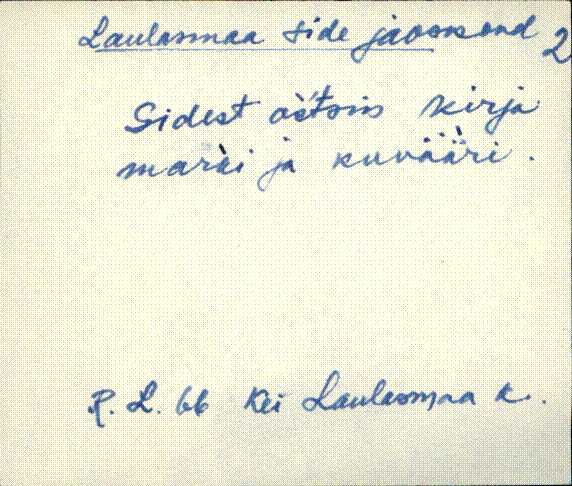 Laulasmaa side jaoskond 2
Sidest os̀'tsin kirja
marḱi ja kuvä̀äri.
R. L. 66 Kei Laulasmaa k.